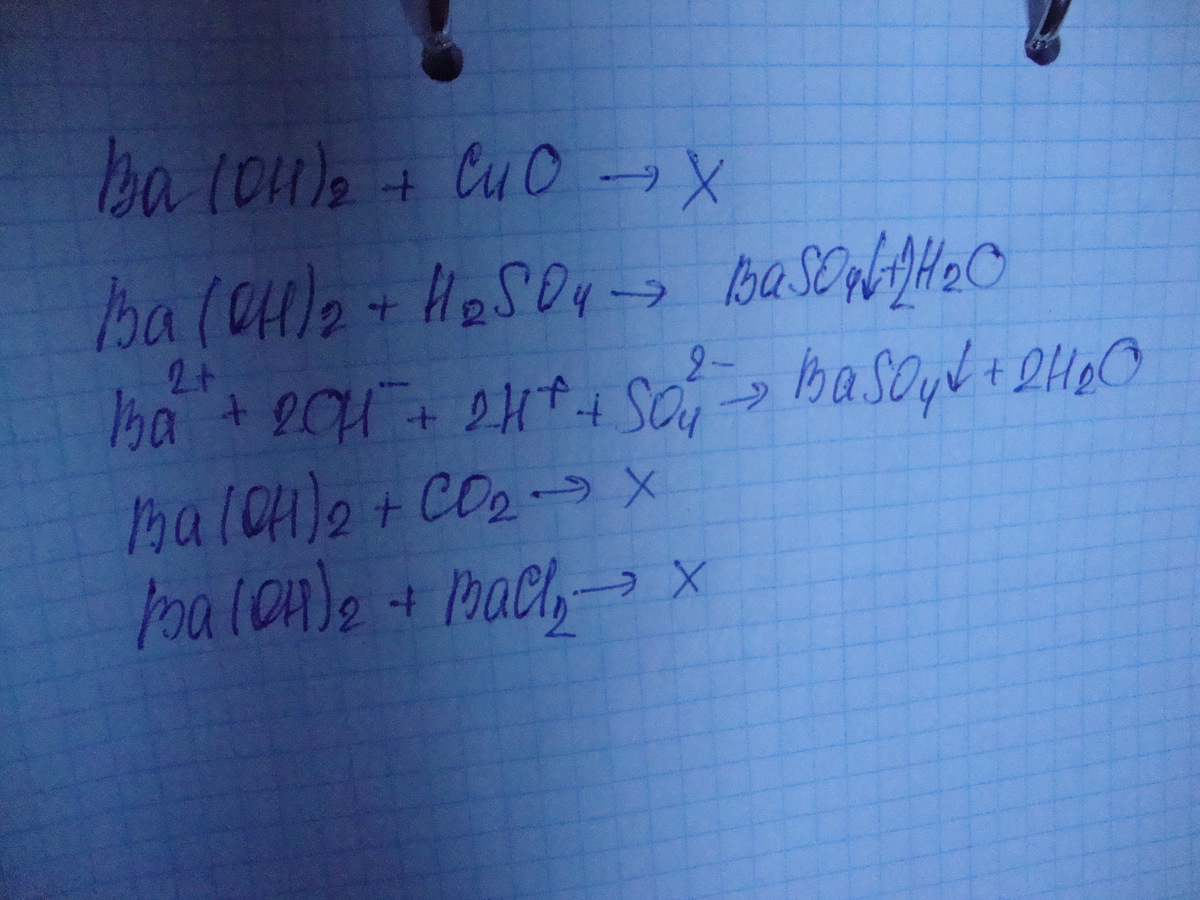 Ba(OH)₂ + CuO → X
Ba(OH)₂ + H₂SO₄ → BaSO₄↓+2H₂O
Ba²⁺ + 2OH⁻ + 2H⁺ + SO₄²⁻ → BaSO₄↓ + 2H₂O
Ba(OH)₂ + CO₂ → X
Ba(OH)₂ + BaCl₂ → X